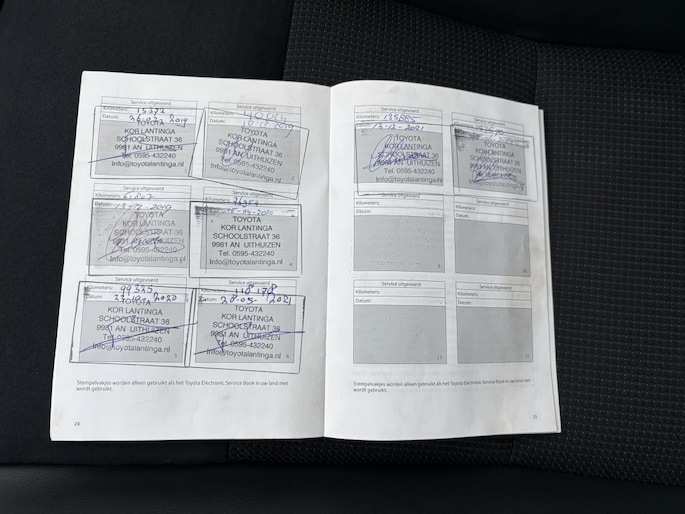 Service uitgevoerd
Kilometers: 15372
Datum: 26-03-2019
TOYOTA
KOR LANTINGA
SCHOOLSTRAAT 36
9981 AN UITHUIZEN
Tel. 0595-432240
Service uitgevoerd
TOYOTA
KOR LANTINGA
SCHOOLSTRAAT 36
9981 AN UITHUIZEN
Tel. 0595-432240
Info@toyotalantinga.nl
2
Service uitgevoerd
Kilometers:
TOYOTA
KOR LANTINGA
SCHOOLSTRAAT 36
9981 AN UITHUIZEN
Tel. 0595-432240
Info@toyotalantinga.nl
Service uitgevoerd
TOYOTA
KOR LANTINGA
SCHOOLSTRAAT 36
9981 AN UITHUIZEN
Tel. 0595-432240
Info@toyotalantinga.nl
4
Service uitgevoerd
Kilometers: 99335
Datum: 2020
TOYOTA
KOR LANTINGA
SCHOOLSTRAAT 36
9981 AN UITHUIZEN
Tel. 0595-432240
Info@toyotalantinga.nl
5
Service uitgevoerd
28-05-2021
TOYOTA
KOR LANTINGA
SCHOOLSTRAAT 36
9981 AN UITHUIZEN
Tel. 0595-432240
Info@toyotalantinga.nl
6
Stempelvakjes worden alleen gebruikt als het Toyota Electronic Service Book in uw land niet
wordt gebruikt.
24
Service uitgevoerd
Kilometers: 135885
Datum: 13-12-2021
TOYOTA
KOR LANTINGA
SCHOOLSTRAAT 36
9981 AN UITHUIZEN
Tel. 0595-432240
Info@toyotalantinga.nl
Service uitgevoerd
Service uitgevoerd
Kilometers:
Datum:
9
Service uitgevoerd
Kilometers:
Datum:
10
Service uitgevoerd
Kilometers:
Datum:
11
Service uitgevoerd
Kilometers:
Datum:
12
Stempelvakjes worden alleen gebruikt als het Toyota Electronic Service Book in uw land niet
wordt gebruikt.
25